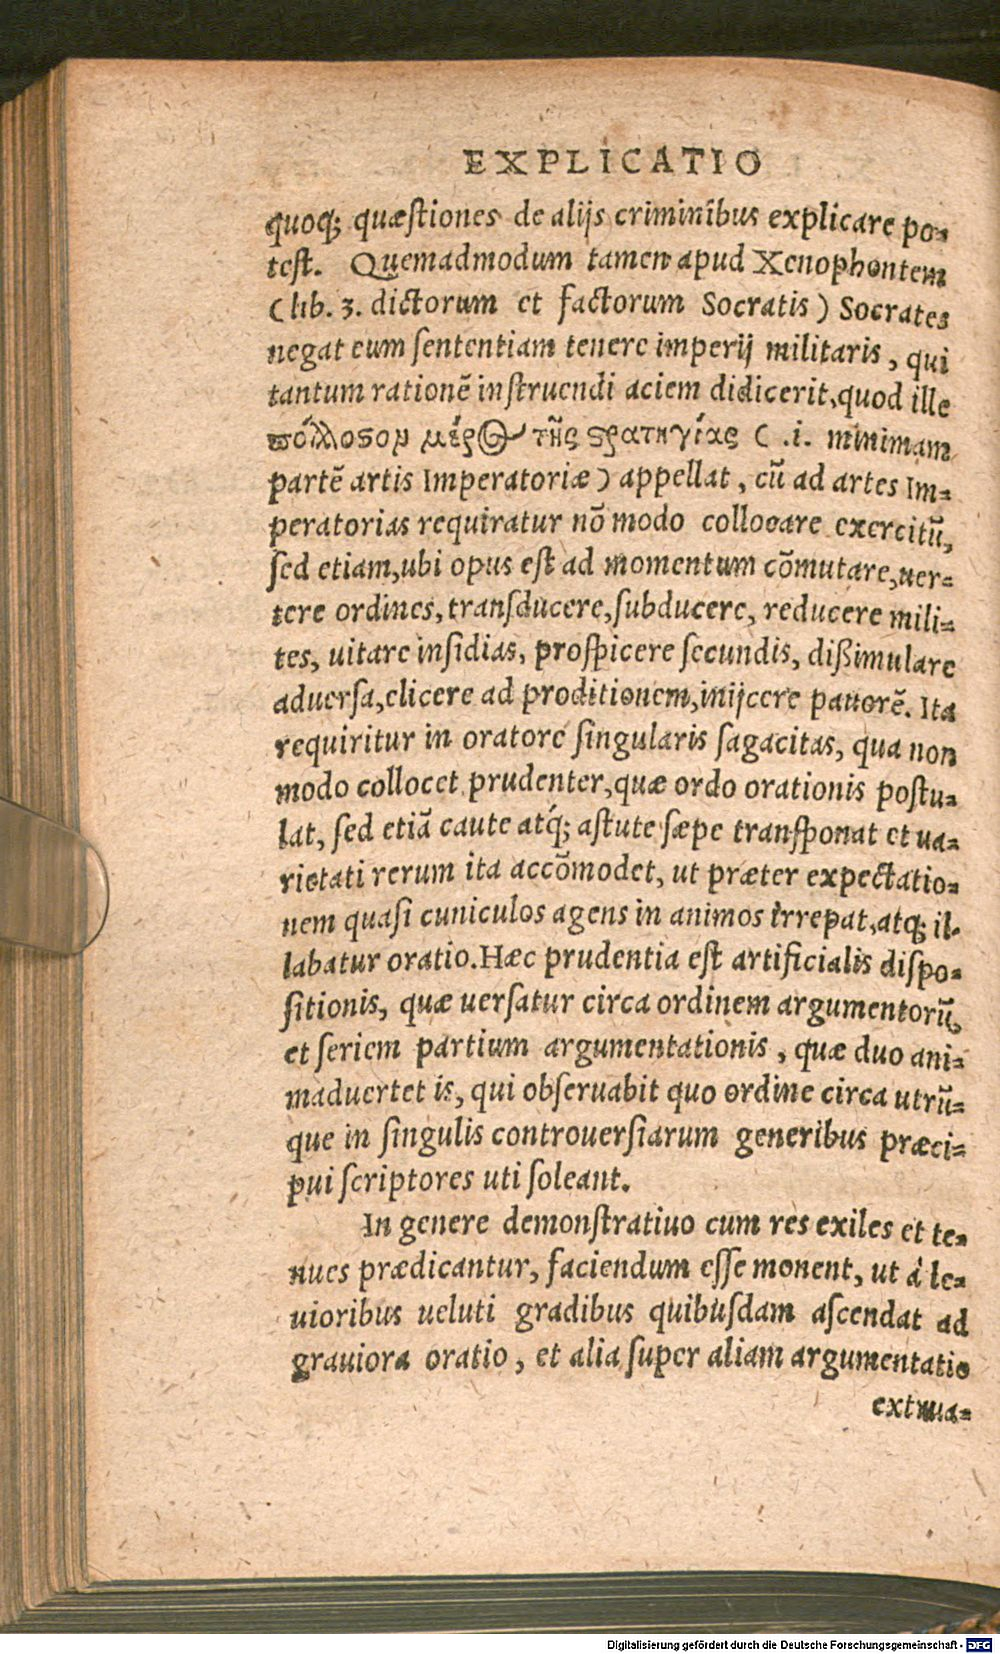 EXPLICATIO
quoq; quæſtiones de alijs criminibus explicare po-
teſt. Quemadmodum tamen apud Xenophontem
(lib. 3. dictorum et factorum Socratis) Socrates
negat eum ſententiam tenere imperij militaris, qui
tantum rationē inſtruendi aciem didicerit, quod ille
πολλοϛὸν μέρος τῆς ϛρατηγίας ( .i. minimam
partē artis Imperatoriæ) appellat, cū ad artes Im-
peratorias requiratur nō modo collocare exercitū,
ſed etiam, ubi opus eſt ad momentum cōmutare, uer-
tere ordines, tranſducere, ſubducere, reducere mili-
tes, uitare inſidias, proſpicere ſecundis, dißimulare
aduerſa, elicere ad proditionem, inijcere pauorē. Ita
requiritur in oratore ſingularis ſagacitas, qua non
modo collocet prudenter, quæ ordo orationis poſtu-
lat, ſed etiā caute atq́; aſtute ſæpe tranſponat et ua-
rietati rerum ita accōmodet, ut præter expectatio-
nem quaſi cuniculos agens in animos irrepat, atq; il-
labatur oratio. Hæc prudentia eſt artificialis diſpo-
ſitionis, quæ uerſatur circa ordinem argumentorū,
et ſeriem partium argumentationis, quæ duo ani-
maduertet is, qui obſeruabit quo ordine circa utrū-
que in ſingulis controuerſiarum generibus præci-
pui ſcriptores uti ſoleant.
In genere demonſtratiuo cum res exiles et te-
nues prædicantur, faciendum eſſe monent, ut à le-
uioribus ueluti gradibus quibuſdam aſcendat ad
grauiora oratio, et alia ſuper aliam argumentatio
extrua-
Digitalisierung gefördert durch die Deutsche Forschungsgemeinschaft - DFG